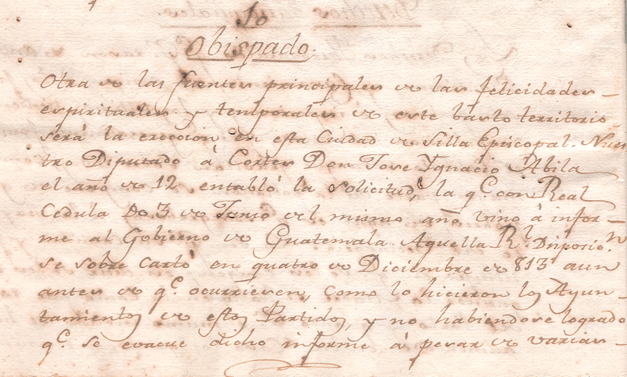 10
Obispado.
Otra de las fuentes principales de las felicidades
espirituales y temporales de este basto territorio
será la ereccion en esta Ciudad de Silla Episcopal. Nues
tro Diputado á Cortes Don Jose Ygnacio Abila
el año de 12 entabló la solicitud, la q.e con Real
Cedula de 3 de Junio del mismo año vino á infor-
me al Gobierno de Guatemala. Aquella R.l Disposic.n
se sobre cartó en quatro de Diciembre de 813 aun
antes de q.e ocurriesen, como lo hicieron los Ayun-
tamientos de estos Partidos, y no habiendose logrado
q.e se evacue dicho informe á pesar de varias